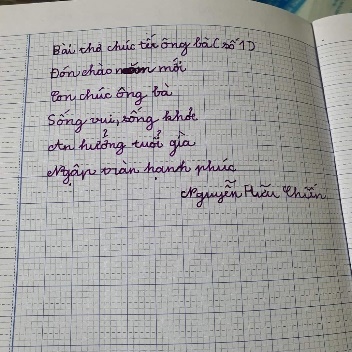 Bài thơ chúc tết ông bà (số 1)
Đón chào năm mới
Con chúc ông bà
Sống vui, sống khỏe
An hưởng tuổi già
Ngập tràn hạnh phúc
Nguyễn Hữu